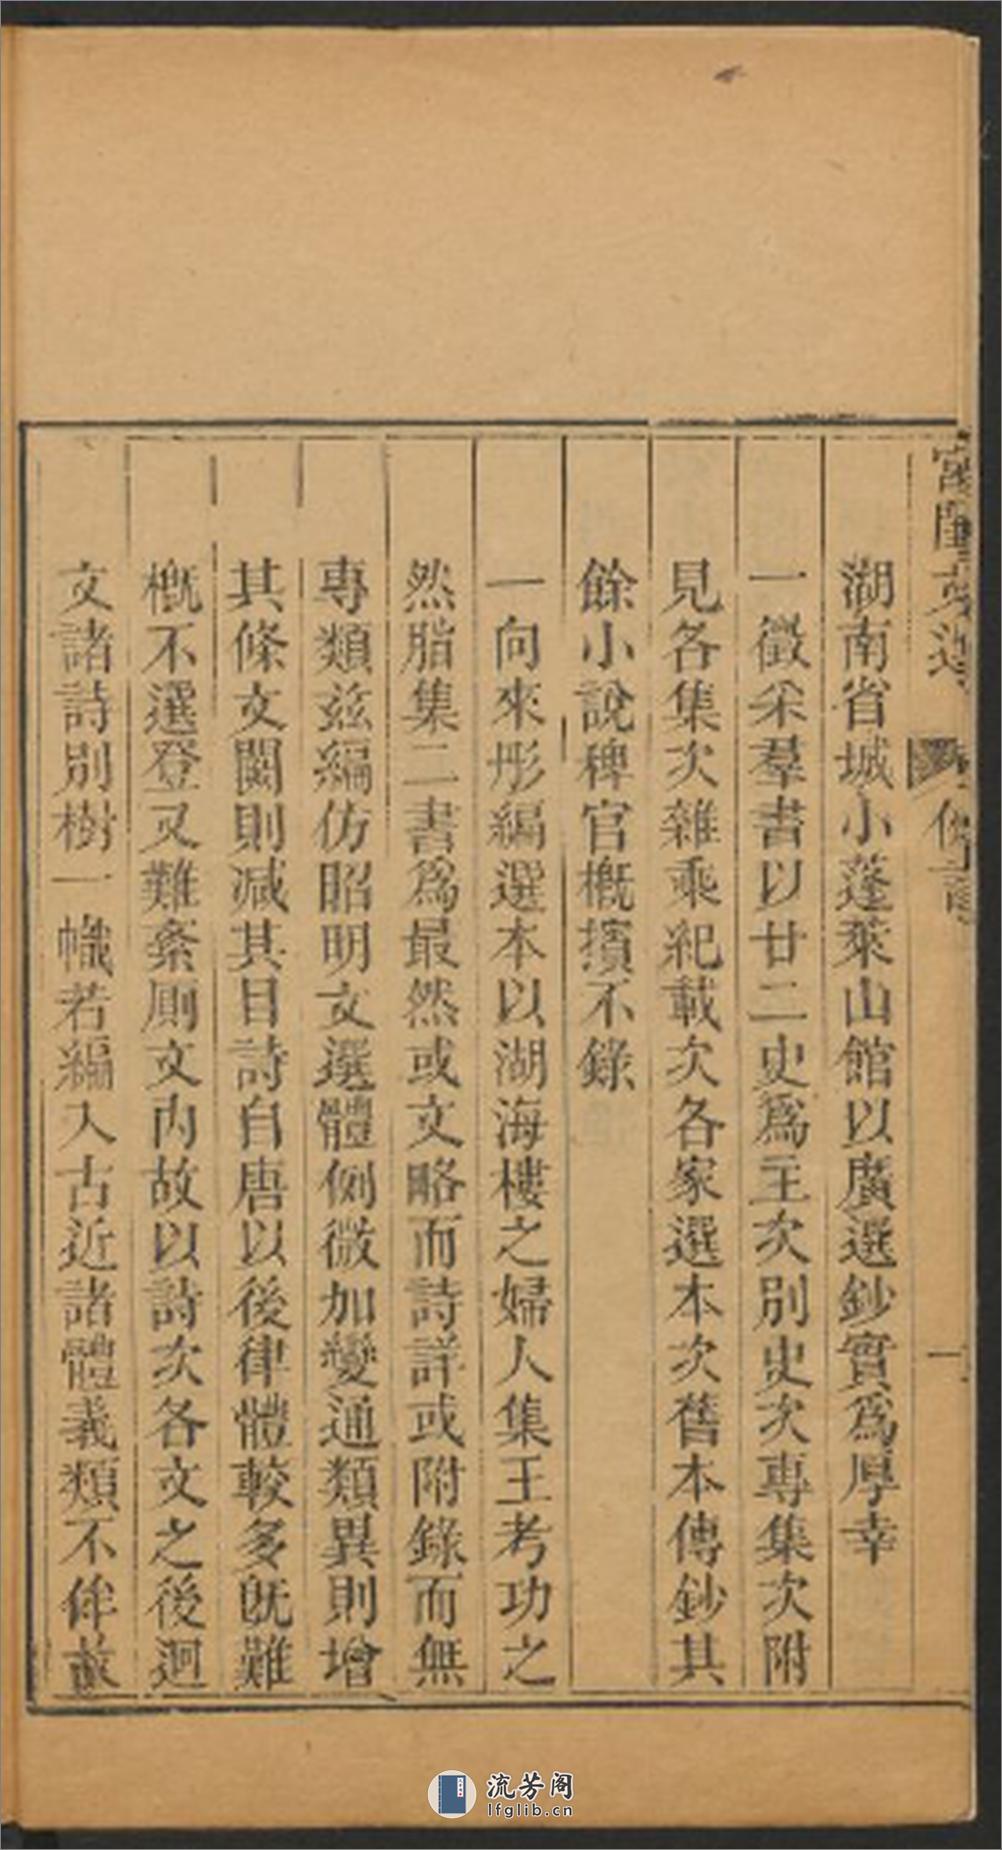 宮閨文選
例言
一
湖南省城小蓬萊山館以廣選鈔實爲厚幸
一徵采羣書以廿二史爲主次別史次專集次附
見各集次雜乘紀載次各家選本次舊本傳鈔其
餘小說稗官概擯不錄
一向來彤編選本以湖海樓之婦人集王考功之
然脂集二書爲最然或文略而詩詳或附錄而無
專類兹編仿昭明文選體例微加變通類異則增
其條文闕則減其目詩自唐以後律體較多旣難
槪不選登又難紊厠文內故以詩次各文之後迥
文諸詩別樹一幟若編入古近諸體義類不侔兹
流芳阁
lfglib.cn